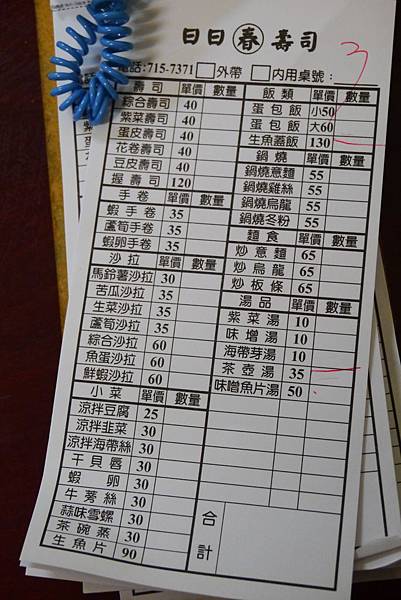 日日春壽司
電話:715-7371 □外帶 □內用桌號: 3
壽司 單價 數量
綜合壽司 40
紫菜壽司 40
蛋皮壽司 40
花卷壽司 40
豆皮壽司 40
握壽司 120
手卷 單價 數量
蝦手卷 35
蘆筍手卷 35
蝦卵手卷 35
沙拉 單價 數量
馬鈴薯沙拉 30
苦瓜沙拉 35
生菜沙拉 35
蘆筍沙拉 35
綜合沙拉 60
魚蛋沙拉 60
鮮蝦沙拉 60
小菜 單價 數量
涼拌豆腐 25
涼拌韭菜 30
涼拌海帶絲 30
干貝唇 30
蝦卵 30
牛蒡絲 30
蒜味雪螺 30
茶碗蒸 30
生魚片 90
飯類 單價 數量
蛋包飯 小50
蛋包飯 大60
生魚蓋飯 130
鍋燒 單價 數量
鍋燒意麵 55
鍋燒雞絲 55
鍋燒烏龍 55
鍋燒冬粉 55
麵食 單價 數量
炒意麵 65
炒烏龍 65
炒板條 65
湯品 單價 數量
紫菜湯 10
味增湯 10
海帶芽湯 10
茶壺湯 35
味噌魚片湯 50
合計